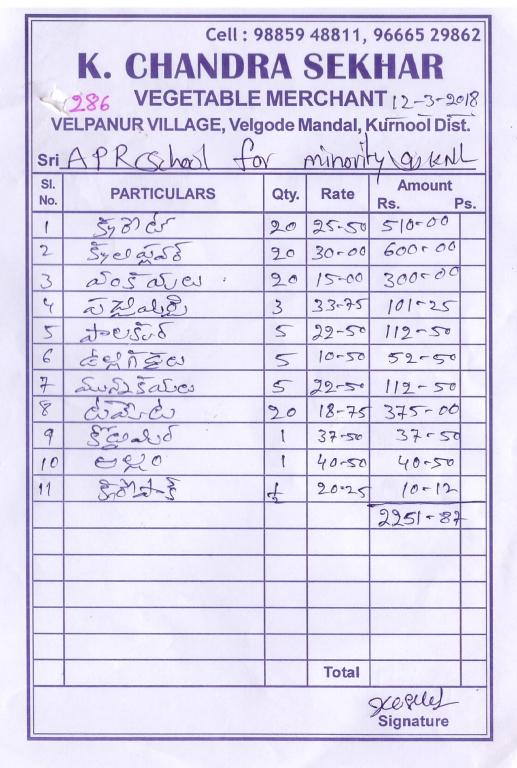 Cell : 98859 48811, 96665 29862
K. CHANDRA SEKHAR
286 VEGETABLE MERCHANT 12-3-2018
VELPANUR VILLAGE, Velgode Mandal, Kurnool Dist.
Sri APR School for minority KNL
Sl. No. PARTICULARS Qty. Rate Amount Rs. Ps.
1 క్యారెట్ 20 25-50 510-00
2 20 30-00 600-00
3 వంకాయలు 20 15-00 300-00
4 పచ్చిమిర్చి 3 33-75 101-25
5 పాలకూర 5 22-50 112-50
6 5 10-50 52-50
7 మునక్కాయలు 5 22-50 112-50
8 టమోట 20 18-75 375-00
9 కొత్తిమీర 1 37-50 37-50
10 అల్లం 1 40-50 40-50
11 ½ 20-25 10-12
2251-87
Total
Signature